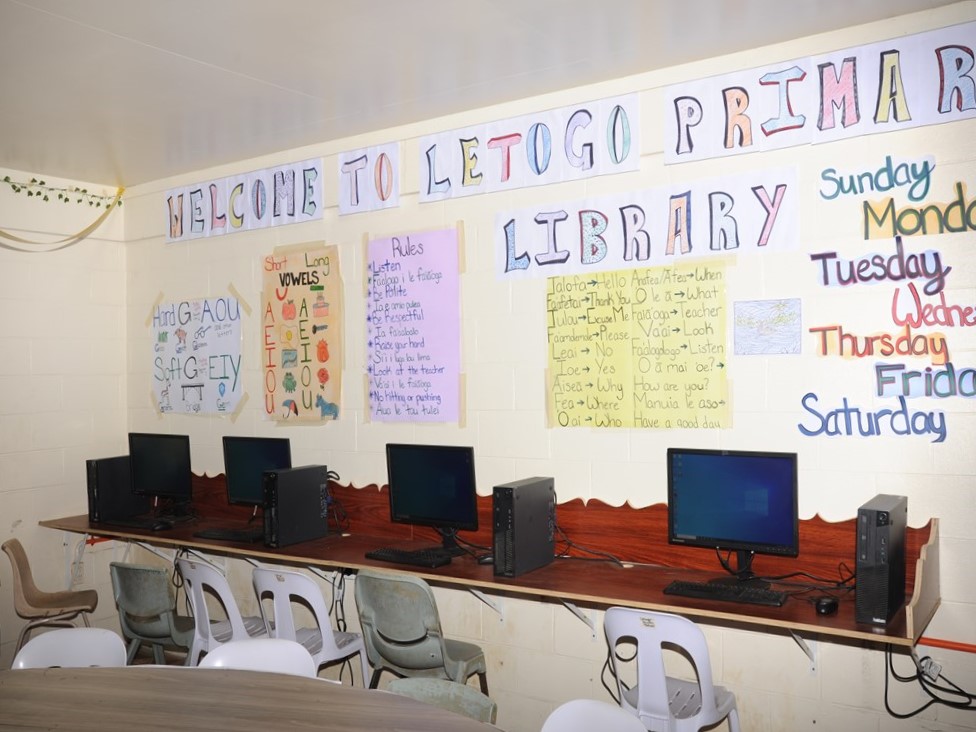 WELCOME TO LETOGO PRIMAR
LIBRARY
Sunday
Monda
Tuesday
Wednes
Thursday
Frida
Saturday
Hard G AOU
Soft G EIY
Short Long
VOWELS
A A
E E
I I
O O
U U
Rules
Listen
Faalogo i le faiāoga
Be Polite
Ia e amio pulea
Be Respectful
Ia faaaloalo
Raise your hand
Sii i luga lou lima
Look at the teacher
Va'ai i le faiaoga
No hitting or pushing
Aua le tau tulei
Talofa→Hello
Faafetai→Thank You
Tulou→Excuse Me
Faamolemole→Please
Leai→No
Ioe→Yes
Aisea→Why
Fea→Where
O ai→Who
Anafea/Afea→When
O le ā→What
Faiaoga→Teacher
Va'ai→Look
Faalogologo→Listen
O ā mai 'oe?→
How are you?
Manuia le aso→
Have a good day